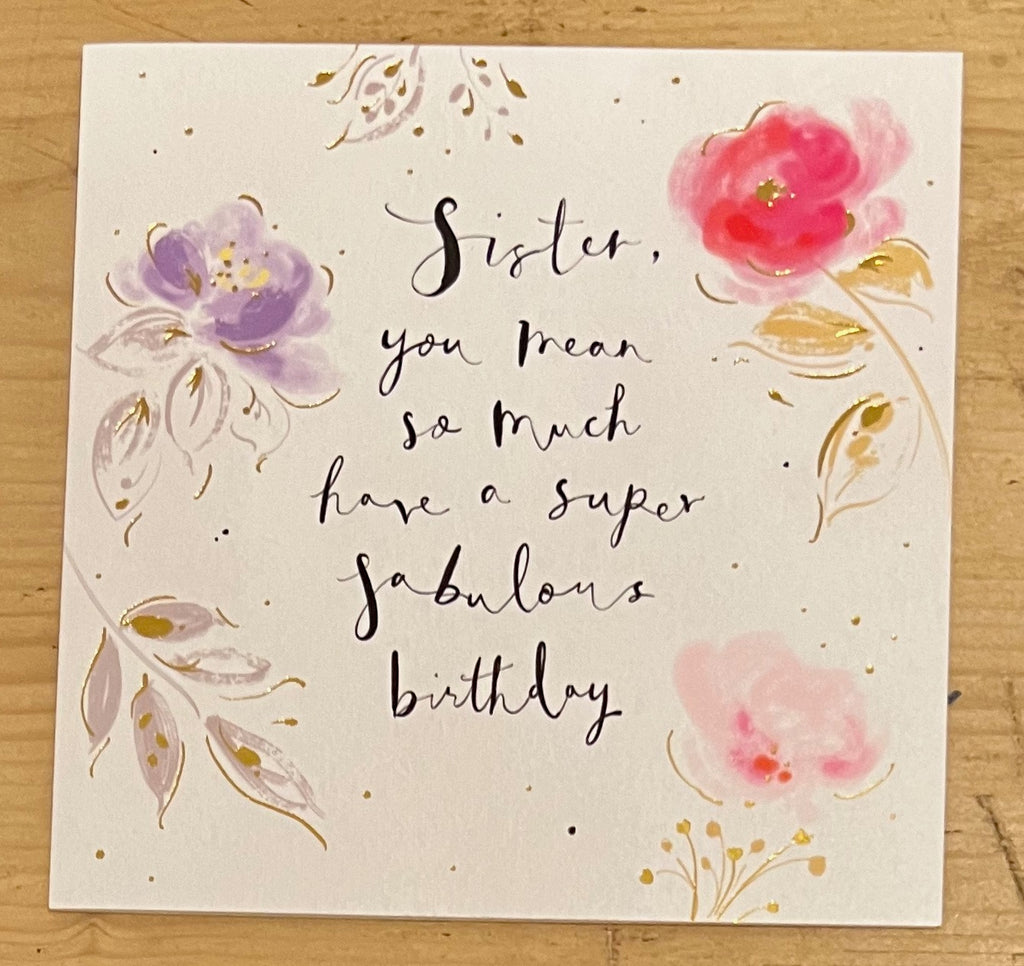 Sister,
you mean
so much
have a super
fabulous
birthday